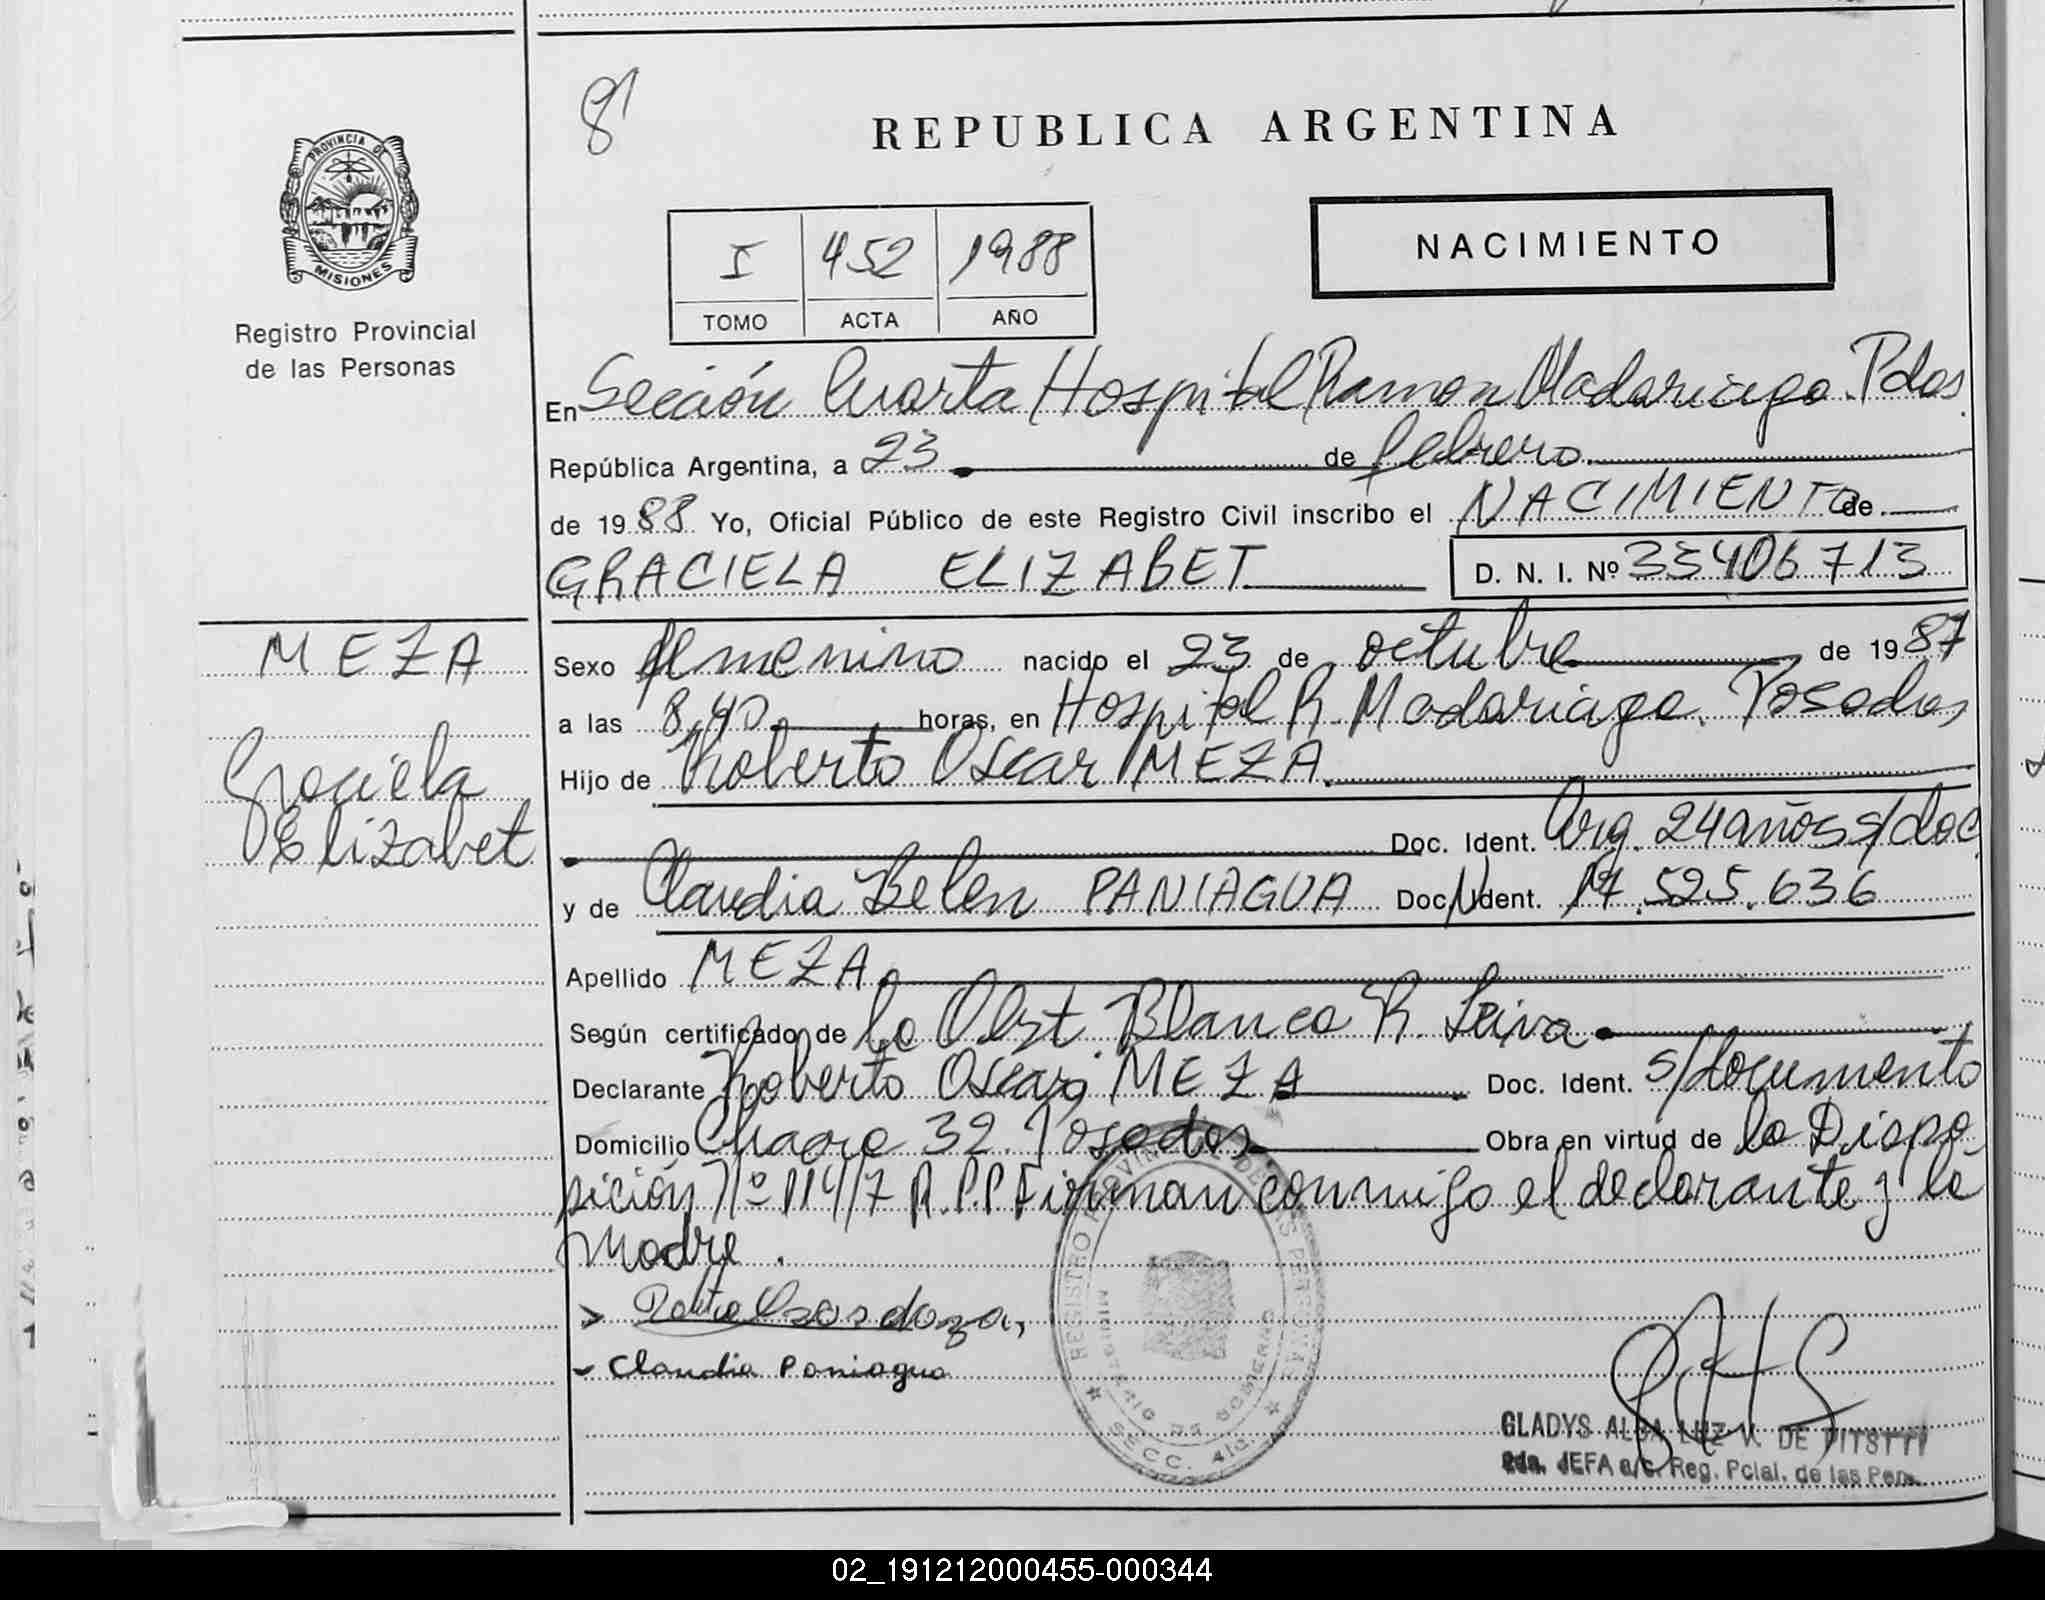 8
REPUBLICA ARGENTINA
PROVINCIA DE
MISIONES
Registro Provincial
de las Personas
I 452 1988
TOMO ACTA AÑO
NACIMIENTO
En Sección Cuarta Hospital Ramon Madariaga. Pdas.
República Argentina, a 23 de febrero
de 1988 Yo, Oficial Público de este Registro Civil inscribo el NACIMIENTO de
GRACIELA ELIZABET D. N. I. Nº 33406713
MEZA
Graciela
Elizabet
Sexo femenino nacido el 23 de octubre de 1987
a las 8,40 horas, en Hospital R. Madariaga. Posadas
Hijo de Roberto Oscar MEZA.
Doc. Ident. Arg. 24 años s/doc
y de Claudia Belen PANIAGUA Doc. Ident. 17.525.636
Apellido MEZA
Según certificado de la Obst. Blanca R. Leiva
Declarante Roberto Oscar MEZA Doc. Ident. s/documento
Domicilio Chacra 32. Posadas Obra en virtud de la Dispo-
sición Nº 114/7 R.P.P Firman conmigo el declarante y la
madre.
Claudia Paniagua
REGISTRO PROVINCIAL DE LAS PERSONAS
MINISTERIO DE GOBIERNO
SECC. 4ta.
GLADYS ALBA LUZ V. DE
2da. JEFA a/c. Reg. Pcial. de las Pers.
02_191212000455-000344